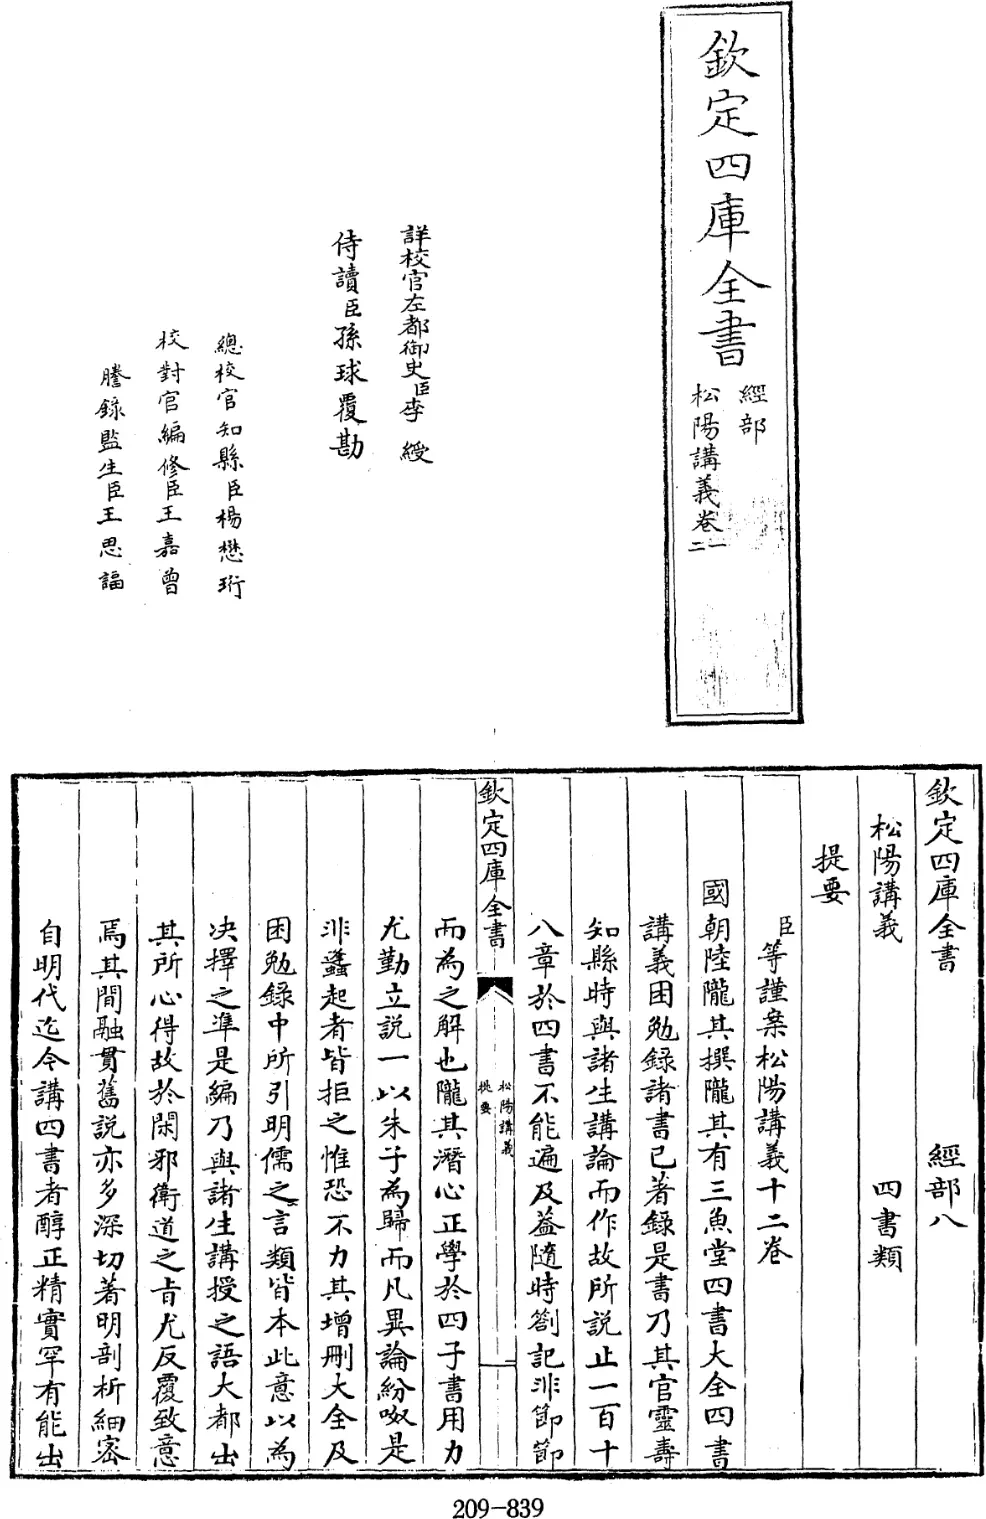 欽定四庫全書
經部
松陽講義卷一
二
詳校官左都御史臣李綬
侍讀臣孫球覆勘
總校官知縣臣楊懋珩
校對官編修臣王嘉曾
謄錄監生臣王思謳
欽定四庫全書 經部八
松陽講義 四書類
提要
臣等謹案松陽講義十二卷
國朝陸隴其撰隴其有三魚堂四書大全四書
講義困勉錄諸書已著錄是書乃其官靈壽
知縣時與諸生講論而作故所説止一百十
八章於四書不能遍及葢隨時劄記非節節
欽定四庫全書
松陽講義
提要
一
而為之解也隴其潛心正學於四子書用力
尤勤立説一以朱子為歸而凡異論紛呶是
非蠭起者皆拒之惟恐不力其增刪大全及
困勉錄中所引明儒之言類皆本此意以為
决擇之準是編乃與諸生講授之語大都出
其所心得故於閑邪衛道之旨尤反覆致意
焉其間融貫舊説亦多深切著明剖析細密
自明代迄今講四書者醇正精實罕有能出
209-839